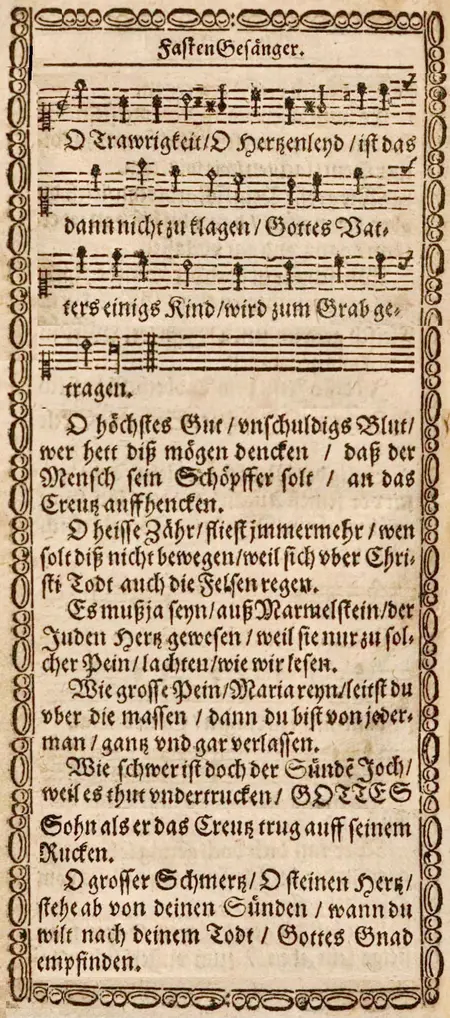 Fasten Gesänger.
O Trawrigkeit/O Hertzenleyd/ist das
dann nicht zu klagen/Gottes Vat-
ters einigs Kind/wird zum Grab ge-
tragen.
O höchstes Gut/vnschuldigs Blut/
wer hett diß mögen dencken / daß der
Mensch sein Schöpffer solt / an das
Creutz auffhencken.
O heisse Zähr/fliest jmmermehr/wen
solt diß nicht bewegen/weil sich vber Chri-
sti Todt auch die Felsen regen.
Es muß ja seyn/auß Marmelstein/der
Juden Hertz gewesen/weil sie nur zu sol-
cher Pein/lachten/wie wir lesen.
Wie grosse Pein/Maria reyn/leitst du
vber die massen / dann du bist von jeder-
man/gantz vnd gar verlassen.
Wie schwer ist doch der Sündẽ Joch/
weil es thut vndertrucken/ GOTTES
Sohn als er das Creutz trug auff seinem
Rucken.
O grosser Schmertz/O steinen Hertz/
stehe ab von deinen Sünden / wann du
wilt nach deinem Todt / Gottes Gnad
empfinden.